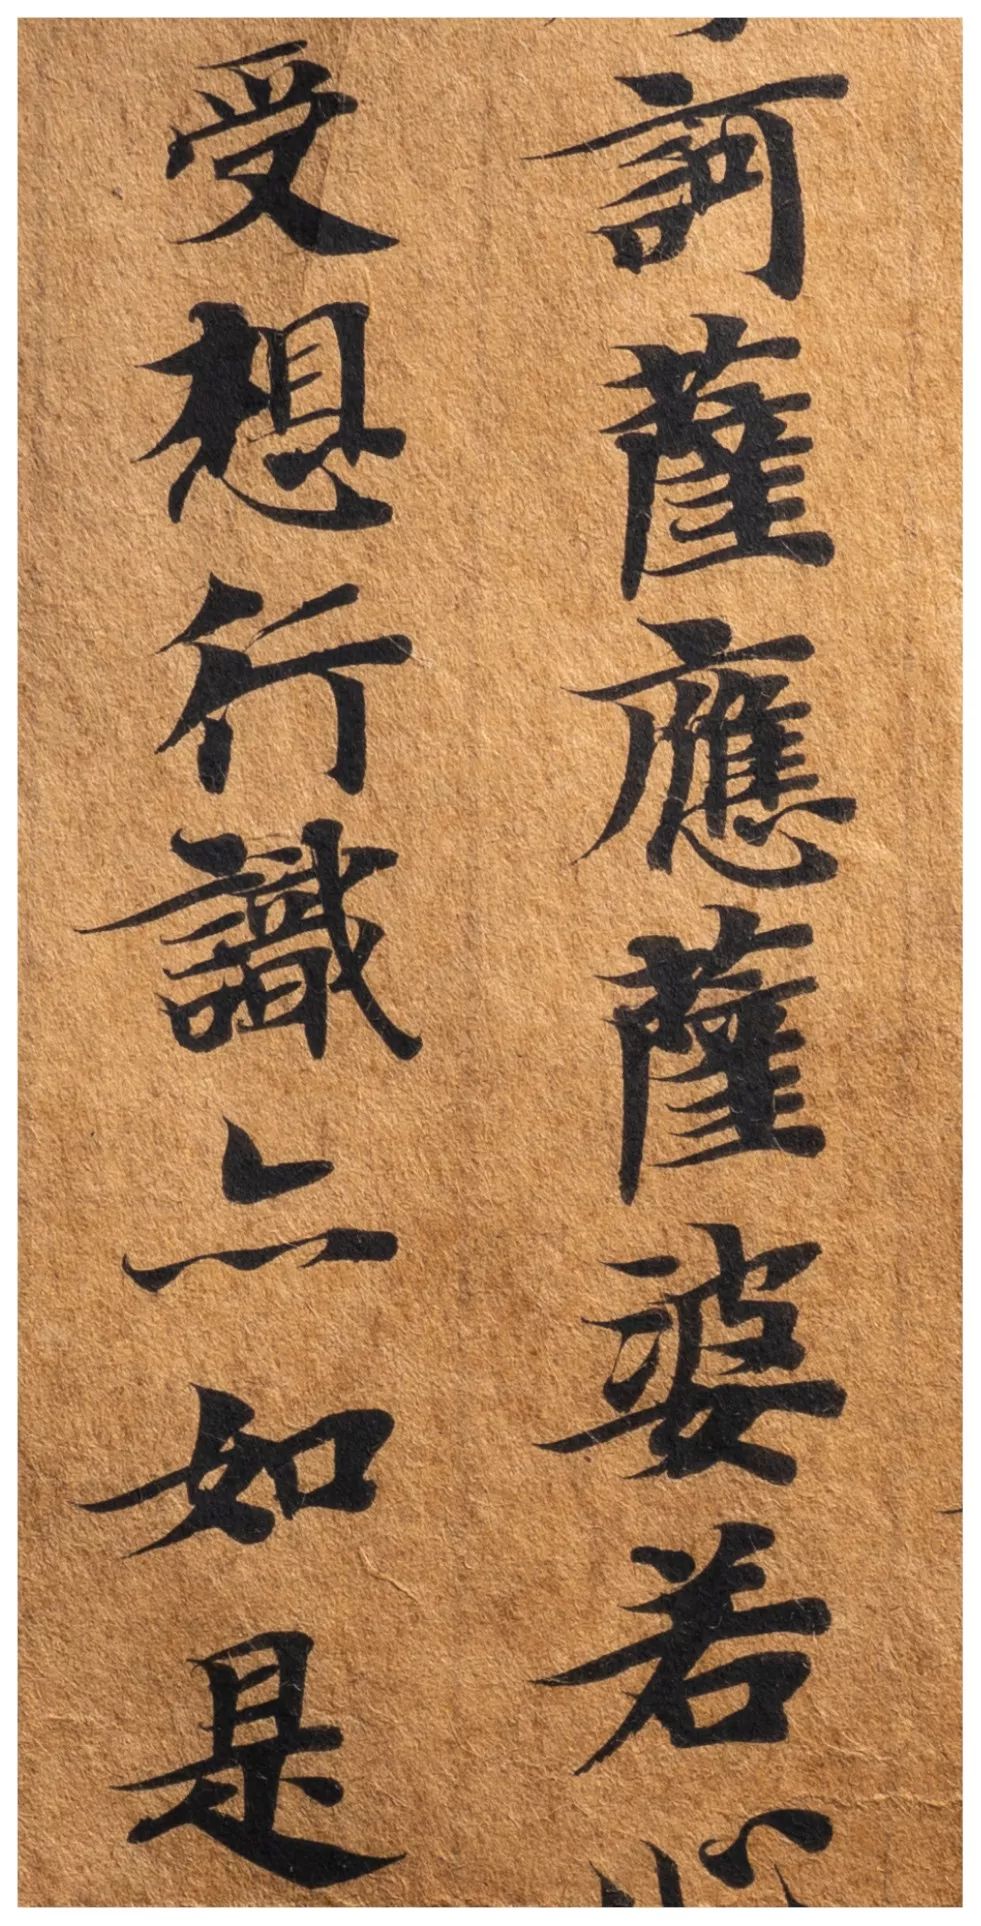 訶薩應薩婆若心
受想行識亠如是